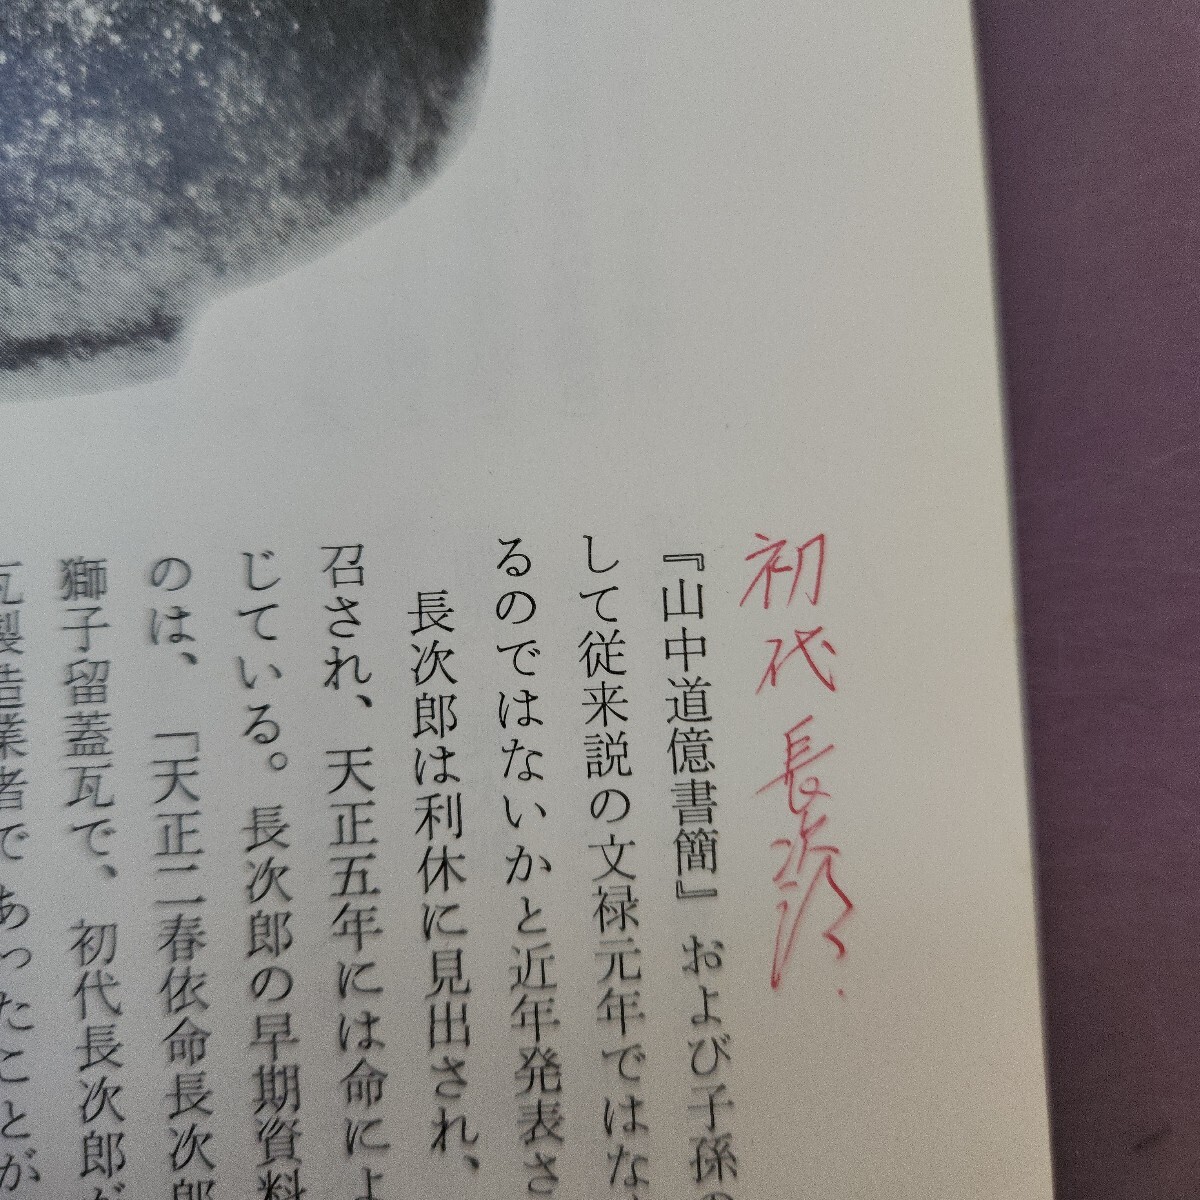 初代長次郎.
『山中道億書簡』および子孫の
して従来説の文禄元年ではな
るのではないかと近年発表さ
長次郎は利休に見出され、
召され、天正五年には命によ
じている。長次郎の早期資料
のは、「天正二春依命長次郎
獅子留蓋瓦で、初代長次郎が
瓦製造業者であったことが